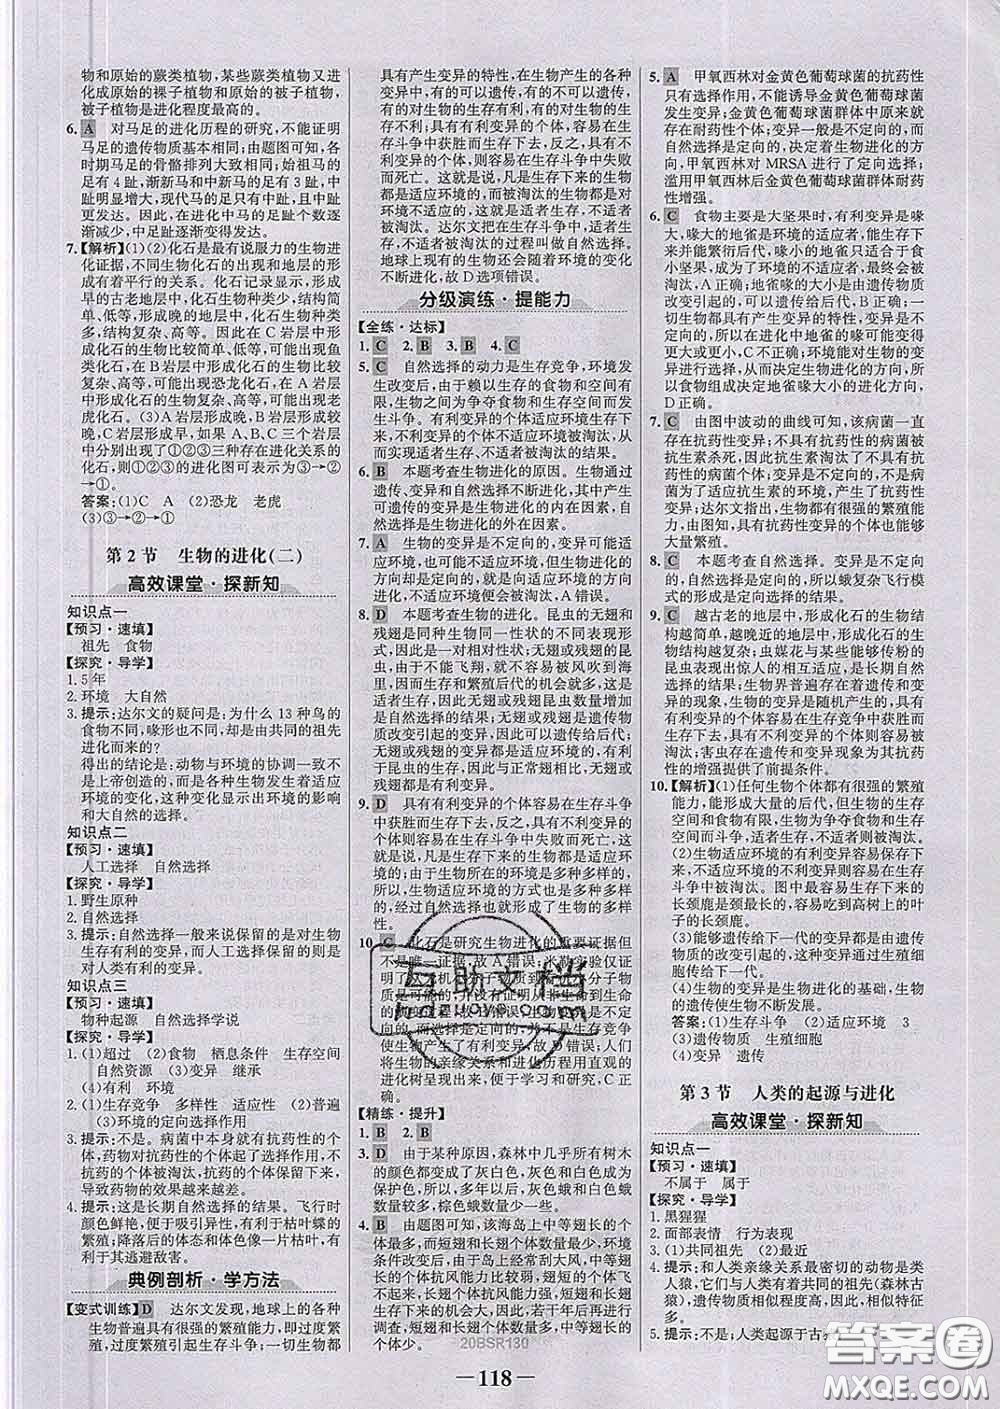 物和原始的蕨类植物,某些蕨类植物又进
化成原始的裸子植物和原始的被子植物,
被子植物是进化程度最高的。
6. A 对马足的进化历程的研究,不能证明
马足的遗传物质基本相同;由题图可知,各
时期马足的骨骼排列大致相同;始祖马的
足有4趾,渐新马和中新马的足有3趾,中
趾明显增大,现代马的足只有中趾,且中趾
更发达。因此,在进化中马的足趾个数逐
渐减少,中足趾逐渐变得发达。
7.【解析】(1)(2)化石是最有说服力的生物进
化证据,不同生物化石的出现和地层的形
成有着平行的关系。化石记录显示,形成
早的古老地层中,化石生物种类少,结构简
单、低等,形成晚的地层中,化石生物种类
多,结构复杂、高等。因此在C岩层中形
成化石的生物比较简单、低等,可能出现鱼
类化石,在B岩层中形成化石的生物比较
复杂、高等,可能出现恐龙化石,在A岩层
中形成化石的生物复杂、高等,可能出现老
虎化石。(3)A岩层形成晚,B岩层形成较
晚,C岩层形成早,如果A、B、C三个岩层
分别出现了①②③三种存在进化关系的
化石,则①②③的进化图可表示为③→②
→①。
答案:(1)C A (2)恐龙 老虎
(3)③→②→①
第2节 生物的进化(二)
高效课堂·探新知
知识点一
【预习·速填】
祖先 食物
【探究·导学】
1. 5年
2. 环境 大自然
3. 提示:达尔文的疑问是:为什么13种鸟的
食物不同,喙形也不同,却是由共同的祖先
进化而来的?
得出的结论是:动物与环境的协调一致不
是上帝创造的,而是各种生物发生着适应
环境的变化,这种变化显示出环境的影响
和大自然的选择。
知识点二
【预习·速填】
人工选择 自然选择
【探究·导学】
1. 野生原种
2. 自然选择
3. 提示:自然选择一般选择保留的是对生物
生存有利的变异,而人工选择保留的则是
对人类有利的变异。
知识点三
【预习·速填】
物种起源 自然选择学说
【探究·导学】
1. (1)超过 (2)食物 栖息条件 生存空间
自然资源 (3)变异 继承
(4)有利 环境
2. (1)生存竞争 多样性 适应性 (2)普遍
(3)环境的定向选择作用
3. 提示:不是。病菌中本身就有抗药性的个
体,药物对抗药性的个体起了选择作用,不
抗药的个体被淘汰,抗药的个体被保留,会
导致药物的效果越来越差。
4. 提示:这是长期自然选择的结果。飞行时
颜色鲜艳,便于吸引异性,有利于枯叶蝶的
繁殖;降落后的体态和体色像一片枯叶,有
利于其逃避敌害。
典例剖析·学方法
【变式训练】D 达尔文发现,地球上的各种
生物普遍具有很强的繁殖能力,即过度繁
殖,过度繁殖引起生存斗争;一切生物都
具有产生变异的特性,在生物产生的各种
变异中,有的可以遗传,有的不能够遗传,
有的对生物的生存有利,有的对生物的生
存不利;具有有利变异的个体,容易在生存
斗争中获胜而生存下去,反之,具有不利变
异的个体,则容易在生存斗争中失败
而死亡。这就是说,凡是生存下来的生物
都是适应环境的,而被淘汰的生物都是对
环境不适应的,这就是适者生存,不适者被
淘汰。达尔文把在生存斗争中,适者生存,
不适者被淘汰的过程叫做自然选择。
地球上现有的生物还会随着环境的变化
不断进化,故D选项错误。
分级演练·提能力
【全练·达标】
1. C 2. B 3. B 4. C
5. C 自然选择的动力是生存竞争,环境发
生改变后,由于赖以生存的食物和空间有
限,生物之间为争夺食物和生存空间而发
生斗争。有利变异的个体适应环境生存下
来,不利变异的个体不适应环境被淘汰,从
而实现适者生存、不适者被淘汰的结果。
6. B 本题考查生物进化的原因。生物通过
遗传、变异和自然选择不断进化,其中产生
可遗传的变异是生物进化的内在因素,自
然选择是生物进化的外在因素。
7. A 生物的变异是不定向的,可能适应环
境,也可能不适应环境,但生物进化的方向
却是定向的,就是朝着适应环境的方向进
化,不适应环境就会被淘汰,A错误。
8. D 本题考查生物的进化。昆虫的无翅和
残翅是同种生物同一性状的不同表现形
式,因此是一对相对性状;无翅或残翅的昆
虫,由于不能飞翔,就不容易被风吹到海
里,因此生存和繁殖后代的机会就多,这是
自然选择的结果;无翅或残翅是遗传物质
改变引起的变异,因此可以遗传给后代;无
翅或残翅的出现,在大风多的海岛上,有利
于昆虫的生存,因此与正常翅相比,无翅或
残翅更能适应环境。
9. D 具有有利变异的个体容易在生存斗争
中获胜而生存下去,反之,具有不利变异的
个体则容易在生存斗争中失败而死亡,也
就是说,凡是生存下来的生物都是适应环
境的;由于生物所在的环境是多种多样的,
所以,生物适应环境的方式也是多种多样
的,经过自然选择就形成了生物的多样性。
10. C 化石是研究生物进化的重要证据但
不是唯一证据,故A错误;米勒实验仅证
明了从无机小分子物质到有机小分子物
质是可能的,并没有证明从非生命到生命
的演变过程,故B错误;生物的变异是不定
向的,而选择是定向的,并不是生存竞争
使生物产生了有利变异,故D错误;人们
将生物的亲缘关系和进化历程用直观的
进化树呈现出来,便于学习和研究,C正确。
【精练·提升】
1. B 2. B
3. D 由于某种原因,森林中几乎所有树木
的颜色都变成了灰白色,灰白色和白色成为
保护色,所以,多年以后,灰白色蛾和白色蛾
数量较多,棕色蛾数量少一些。
4. B 由题图可知,该海岛上中等翅长的个
体数量最多,而短翅和长翅个体数量最少,环境
条件改变后,由于岛上经常刮大风,中等翅
长的个体抗风性差,容易被风刮到海里,
生存机会较小;而短翅、长翅个体适应环
境,若干年后再进行调查,
短翅和长翅个体数量多,中等翅长的个体少。
5. A 甲氧西林对金黄色葡萄球菌的抗药性
只有选择作用,不能诱导金黄色葡萄球菌
发生变异;金黄色葡萄球菌群体中原来就
存在耐药性个体;变异一般是不定向的,
甲氧西林对MRSA进行了定向选择;
滥用甲氧西林后金黄色葡萄球菌群体耐药
性增强。
6. C 食物主要是大坚果时,有利变异是喙
大,喙大的地雀是环境的适应者,能生存下
来并能繁衍后代,喙小的地雀只适合于食
小坚果,成为了环境的不适应者,可能会被
淘汰,A正确;地雀喙的大小是由遗传物质
改变引起的,可以遗传给后代,B正确;一
切生物都具有产生变异的特性,因此并不
是进化中让地雀的喙产生了大小的变异,
C不正确;环境能对生物的变异进行选择,
从而决定生物进化的方向,所以食物组成
决定地雀喙大小的进化方向,D正确。
7. C 由图中波动的曲线可知,该病菌一直
存在抗药性变异;不具有抗药性的病菌被
抗生素杀死,因此生存下来的都是具有抗
药性的个体;变异是不定向的,不能说该病
菌为了适应抗生素的环境,产生了抗药性
变异。达尔文指出,生物都有很强的繁殖
能力,由图知,具有抗药性变异的个体能够
大量繁殖。
8. C 本题考查自然选择。变异是不定向
的,自然选择是定向的,所以蛾复杂飞行模式
的形成是定向选择的结果。
9. C 越古老的地层中,形成化石的生物结
构越简单,越晚近的地层中,形成化石的生
物结构越复杂;虫媒花与某些能够传粉的
昆虫表现出惊人的相互适应,是长期自然
选择的结果;生物界普遍存在着遗传和变
异的现象,生物的变异是随机产生的,具有
有利变异的个体容易在生存竞争中获胜而
生存下去,具有不利变异的个体则容易被
淘汰;害虫存在遗传和变异现象为其抗药
性的增强提供了前提条件。
10.【解析】(1)任何生物个体都有很强的繁殖
能力,能形成大量的后代,但生物的生存
空间和食物有限,生物为争夺食物和生存
空间而斗争,适者生存,不适者则被淘汰。
(2)生物适应环境的有利变异容易保存下
来,不适应环境的不利变异则容易在生存
斗争中被淘汰。图中最容易生存下来的
长颈鹿是颈最长的,容易吃到高高树上的
叶子的长颈鹿。
(3)能够遗传给下一代的变异是由遗传物
质的改变引起的变异,遗传通过生殖细
胞传给下一代。
(4)生物的变异是生物进化的基础,生物
的遗传使生物不断发展。
答案:(1)生存斗争 (2)适应环境 3
(3)遗传物质 生殖细胞
(4)变异 遗传
第3节 人类的起源与进化
高效课堂·探新知
知识点一
【预习·速填】
不属于 属于
【探究·导学】
1. 黑猩猩
2. 面部表情 行为表现
3. (1)共同祖先 (2)最近
4. 提示:和人类亲缘关系最密切的动物是类
人猿,它们与人类有着共同的祖先(森林古
猿),遗传物质相似程度最高,因此和人类
最相似。
5. 提示:不是;人类起源于古
20BSR130
— 118 —
互助文档
hdzuoye.com
答案圈
MXQE.COM